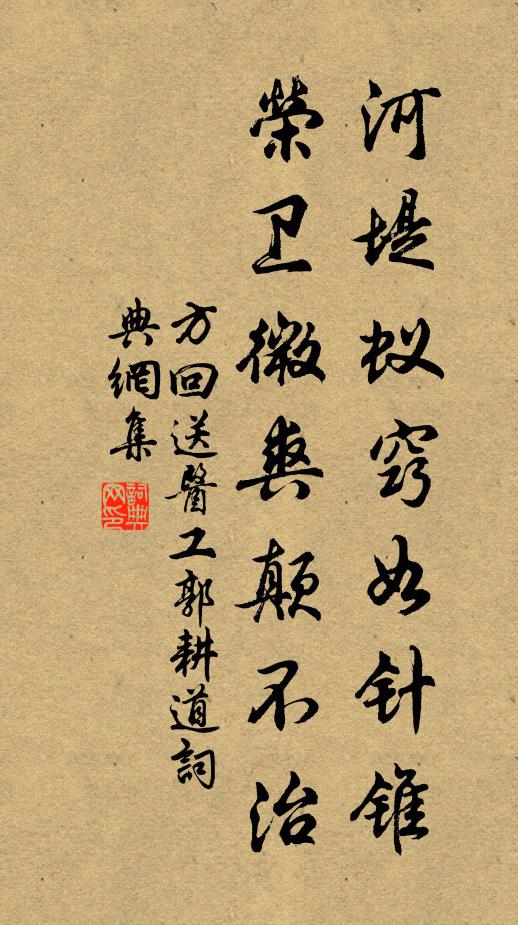 河堤蚁窍如针锥
荣卫微爽颠不治
方回送醫工郭耕道詞
典網集
詞典网印